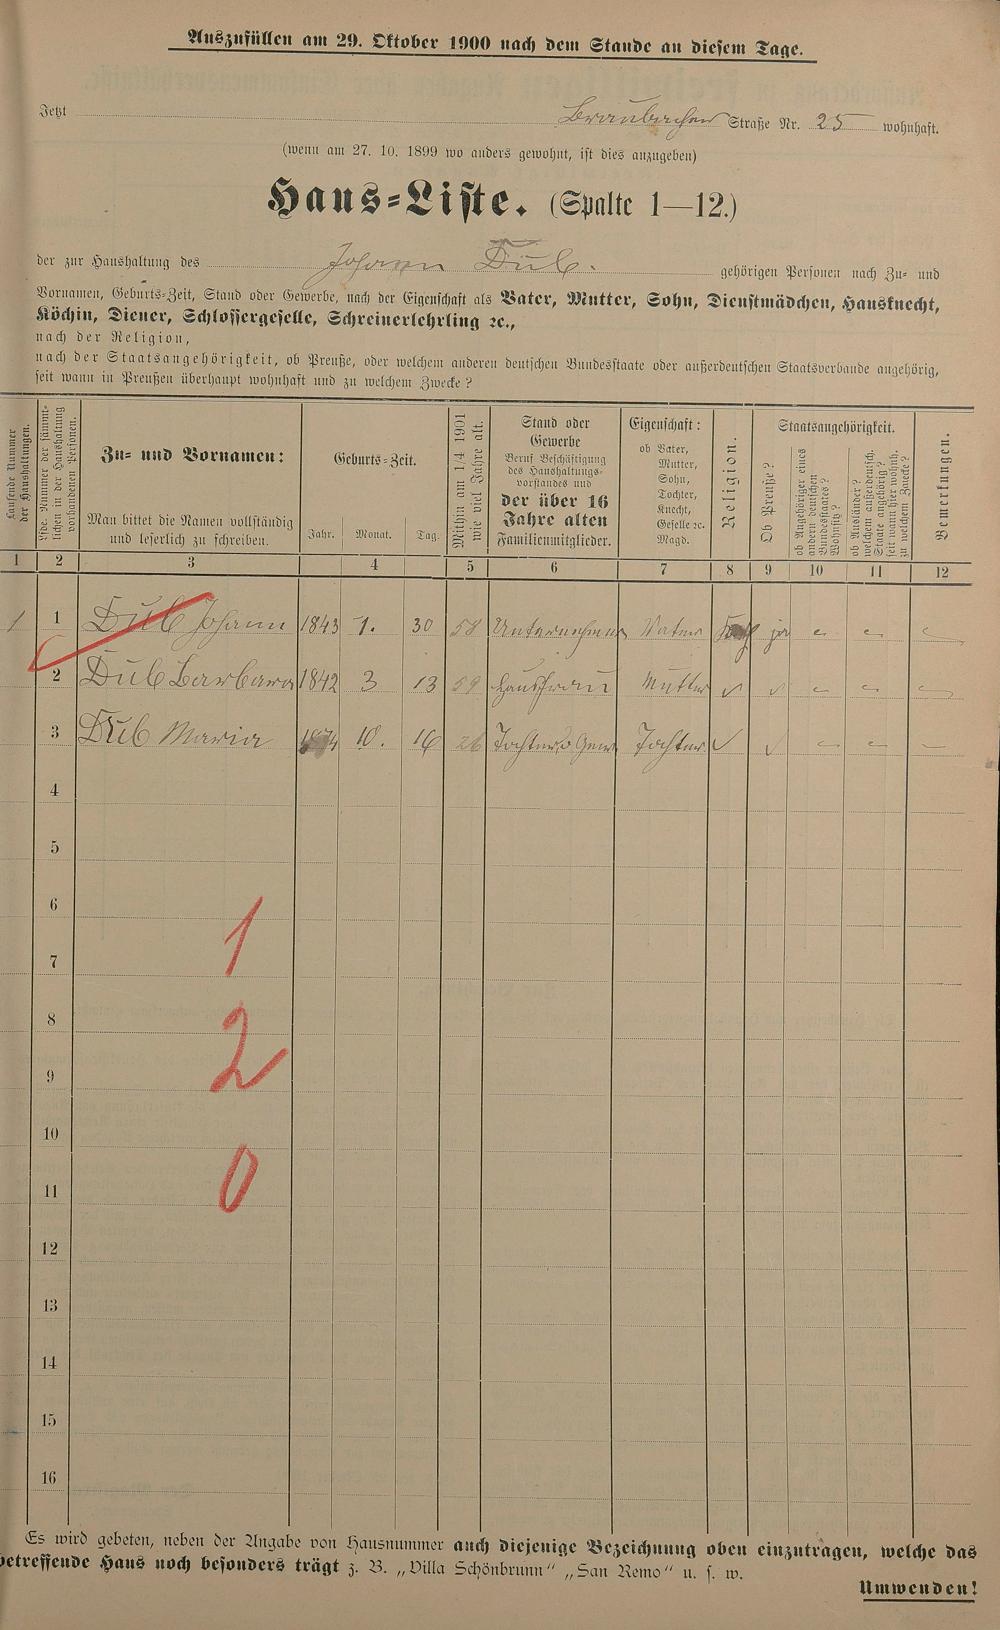 Auszufüllen am 29. Oktober 1900 nach dem Stande an diesem Tage.
Jetzt Braubacher Straße Nr. 25 wohnhaft.
(wenn am 27. 10. 1899 wo anders gewohnt, ist dies anzugeben)
Haus-Liste. (Spalte 1—12.)
der zur Haushaltung des Johann Dub. gehörigen Personen nach Zu- und
Vornamen, Geburts-Zeit, Stand oder Gewerbe, nach der Eigenschaft als Vater, Mutter, Sohn, Dienstmädchen, Hausknecht,
Köchin, Diener, Schlossergeselle, Schreinerlehrling ꝛc.,
nach der Religion,
nach der Staatsangehörigkeit, ob Preuße, oder welchem anderen deutschen Bundesstaate oder außerdeutschen Staatsverbande angehörig,
seit wann in Preußen überhaupt wohnhaft und zu welchem Zwecke?
Laufende Nummer
der Haushaltungen.
lfde. Nummer der sämmt-
lichen in der Haushaltung
vorhandenen Personen.
Zu- und Vornamen:
Man bittet die Namen vollständig
und leserlich zu schreiben.
Geburts-Zeit.
Jahr. Monat. Tag.
Mithin am 1/4 1901
wie viel Jahre alt.
Stand oder
Gewerbe
Beruf Beschäftigung
des Haushaltungs-
vorstandes und
der über 16
Jahre alten
Familienmitglieder.
Eigenschaft:
ob Vater,
Mutter,
Sohn,
Tochter,
Knecht,
Geselle ꝛc.
Magd.
Religion.
Staatsangehörigkeit.
Ob Preuße?
ob Angehöriger eines
andern deutschen
Bundesstaates?
Wohnsitz?
ob Ausländer?
welchem außerdeutsch.
Staate angehörig?
seit wann hier wohnh.
zu welchem Zwecke?
Bemerkungen.
1 2 3 4 5 6 7 8 9 10 11 12
1 1 Dub Johann 1843 1. 30 58 Unternehmer Vater ja
2 Dub Barbara 1842 3 13 59 Hausfrau Mutter
3 Dub Maria 1874 10. 16 26 Tochter Tochter
4
5
6
1
7
8
2
9
10
0
11
12
13
14
15
16
Es wird gebeten, neben der Angabe von Hausnummer auch diejenige Bezeichnung oben einzutragen, welche das
betreffende Haus noch besonders trägt z. B. „Villa Schönbrunn“ „San Remo“ u. s. w.
Umwenden!